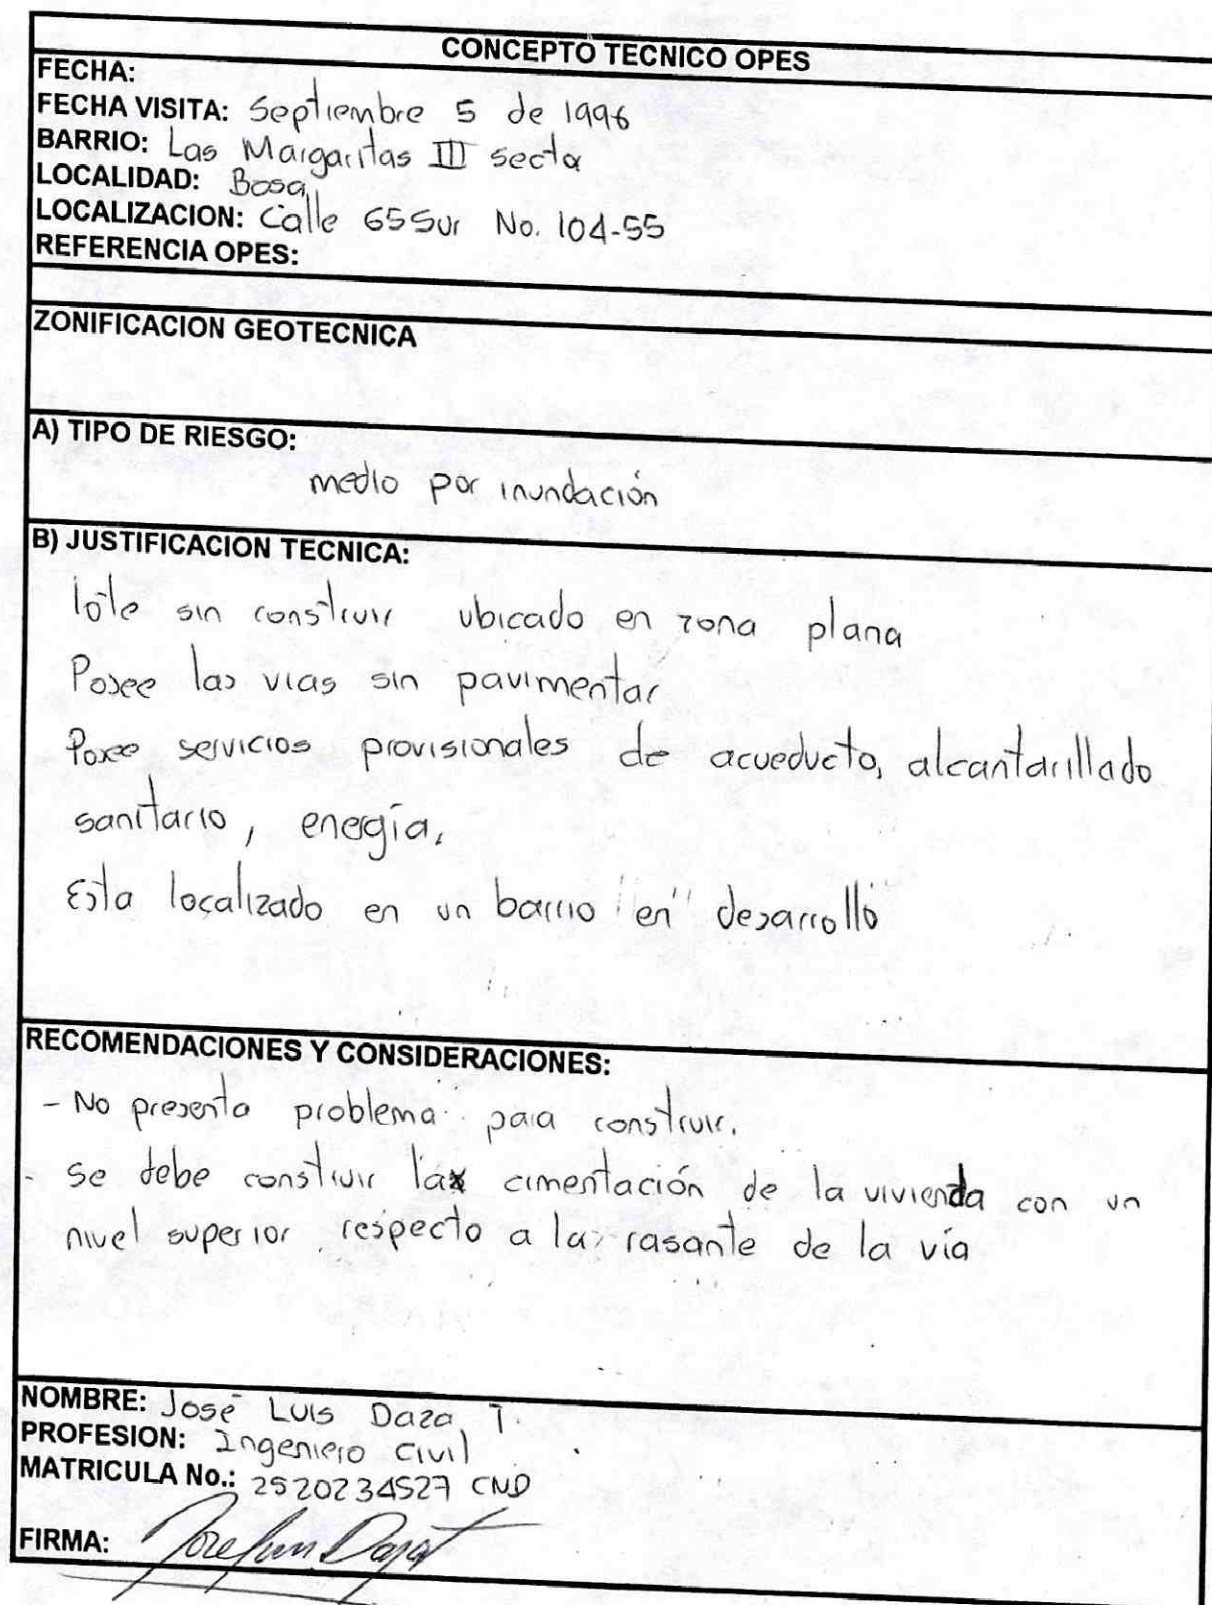 CONCEPTO TECNICO OPES
FECHA:
FECHA VISITA: Septiembre 5 de 1996
BARRIO: Las Margaritas III sector
LOCALIDAD: Bosa
LOCALIZACION: Calle 65 Sur No. 104-55
REFERENCIA OPES:
ZONIFICACION GEOTECNICA
A) TIPO DE RIESGO:
medio por inundación
B) JUSTIFICACION TECNICA:
lote sin construir ubicado en zona plana
Posee las vias sin pavimentar
Posee servicios provisionales de acueducto, alcantarillado
sanitario, energía.
Esta localizado en un barrio "en" desarrollo
RECOMENDACIONES Y CONSIDERACIONES:
- No presenta problema para construir.
- se debe construir la cimentación de la vivienda con un
nivel superior respecto a la rasante de la vía
NOMBRE: José Luis Daza T.
PROFESION: Ingeniero Civil
MATRICULA No.: 2520234527 CND
FIRMA: Jose Luis Daza T